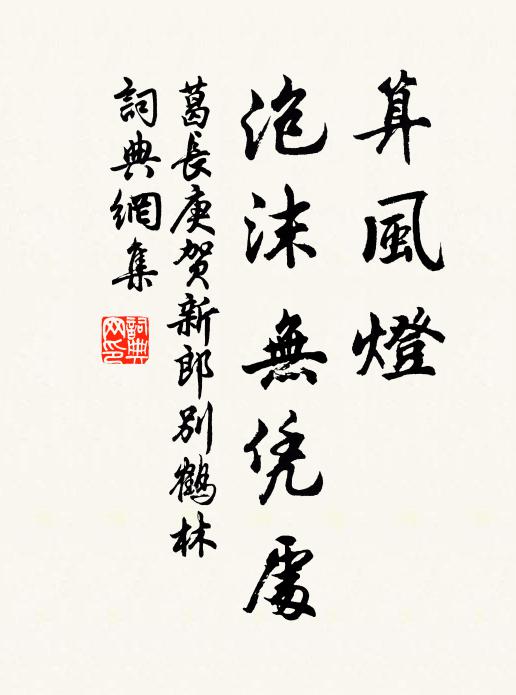 算風燈
泡沫無凭處
葛長庚賀新郎別鶴林
詞典網集
詞典网印